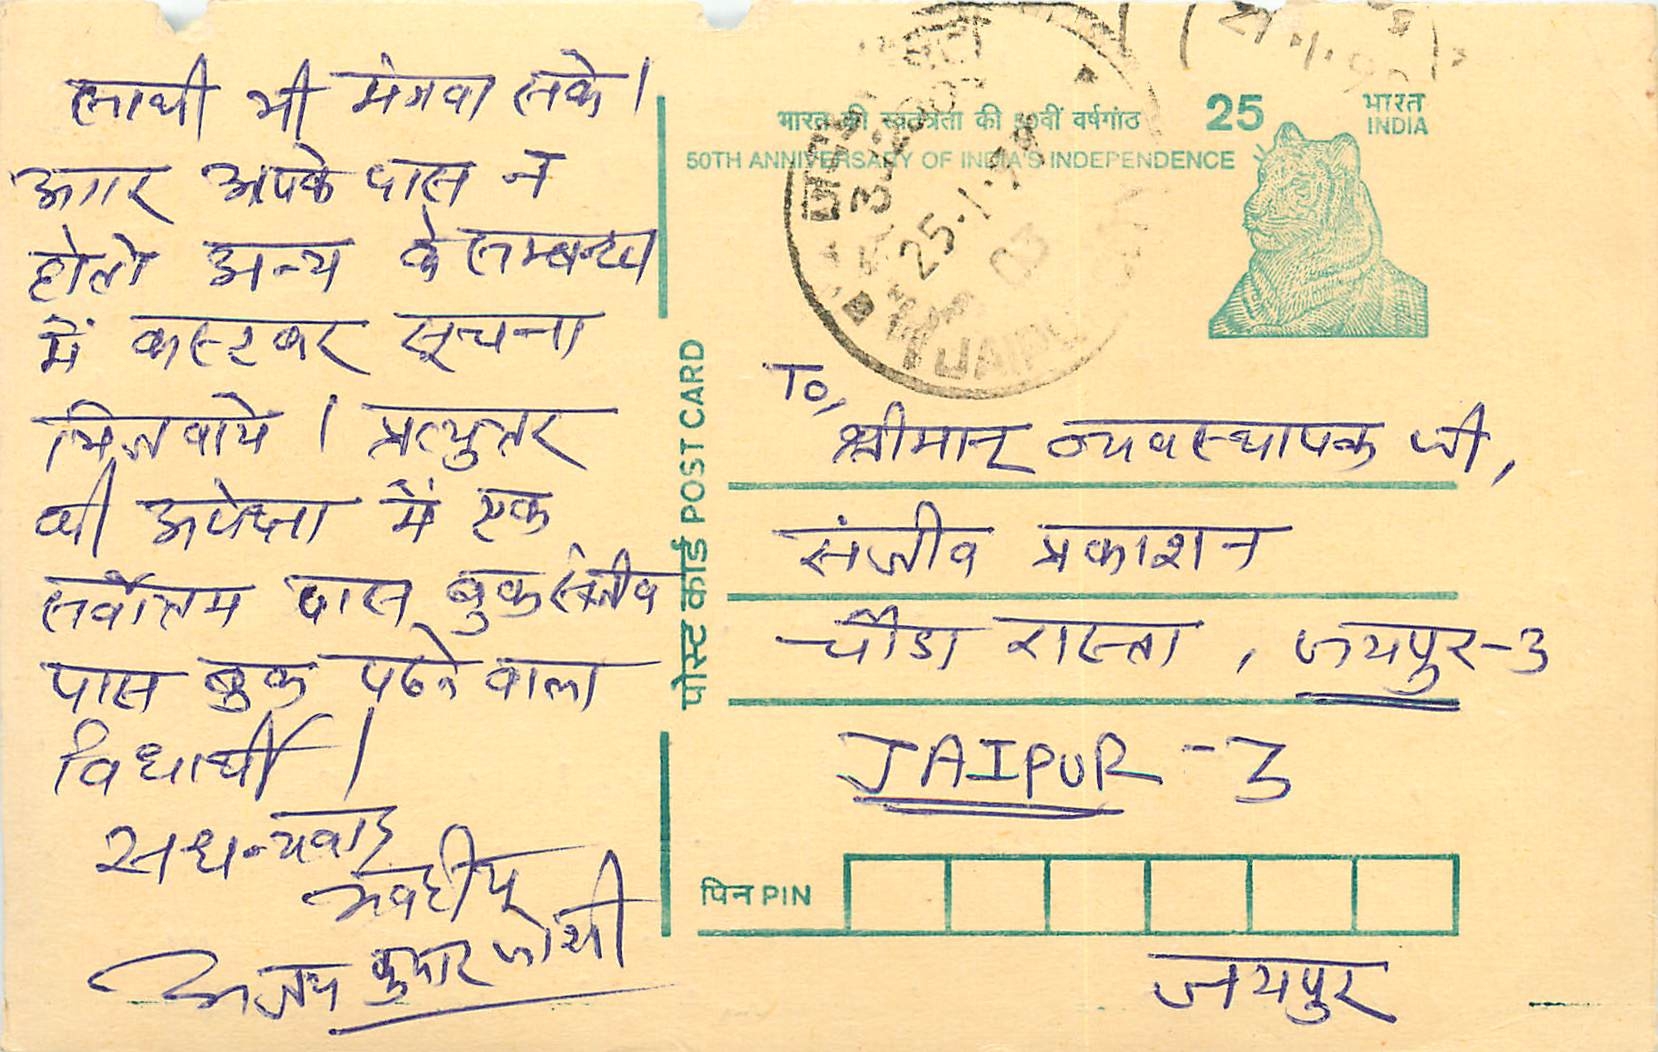 साथी भी मंगवा सके।
अगर आपके पास न
होतो अन्य के सम्बन्ध
में कस्टकर सूचना
भिजवाये । प्रत्युत्तर
की अपेक्षा में एक
सर्वोत्तम पास बुक संजीव
पास बुक पढने वाला
विधार्थी ।
सधन्यवाद
भवदीय
अजय कुमार
भारत की स्वतंत्रता की 50वीं वर्षगांठ
50TH ANNIVERSARY OF INDIA'S INDEPENDENCE
25
भारत
INDIA
25.1.99
JAIPUR
पोस्ट कार्ड POST CARD
To,
श्रीमान् व्यवस्थापक जी,
संजीव प्रकाशन
चौडा रास्ता , जयपुर-3
JAIPUR-3
पिन PIN
जयपुर